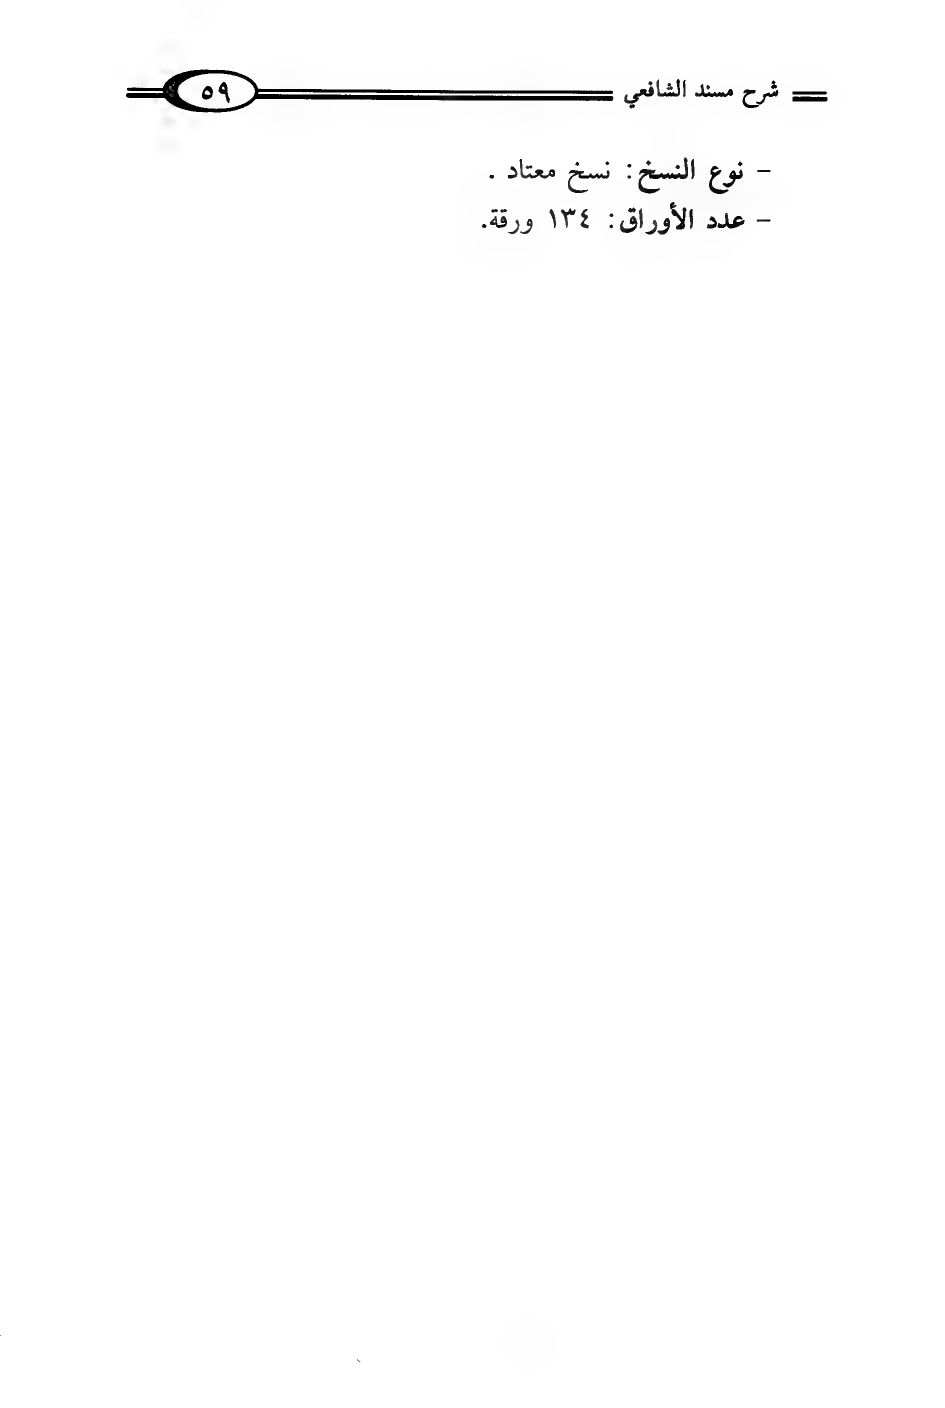 شرح مسند الشافعي ٥٩
- نوع النسخ: نسخ معتاد .
- عدد الأوراق: ١٣٤ ورقة.